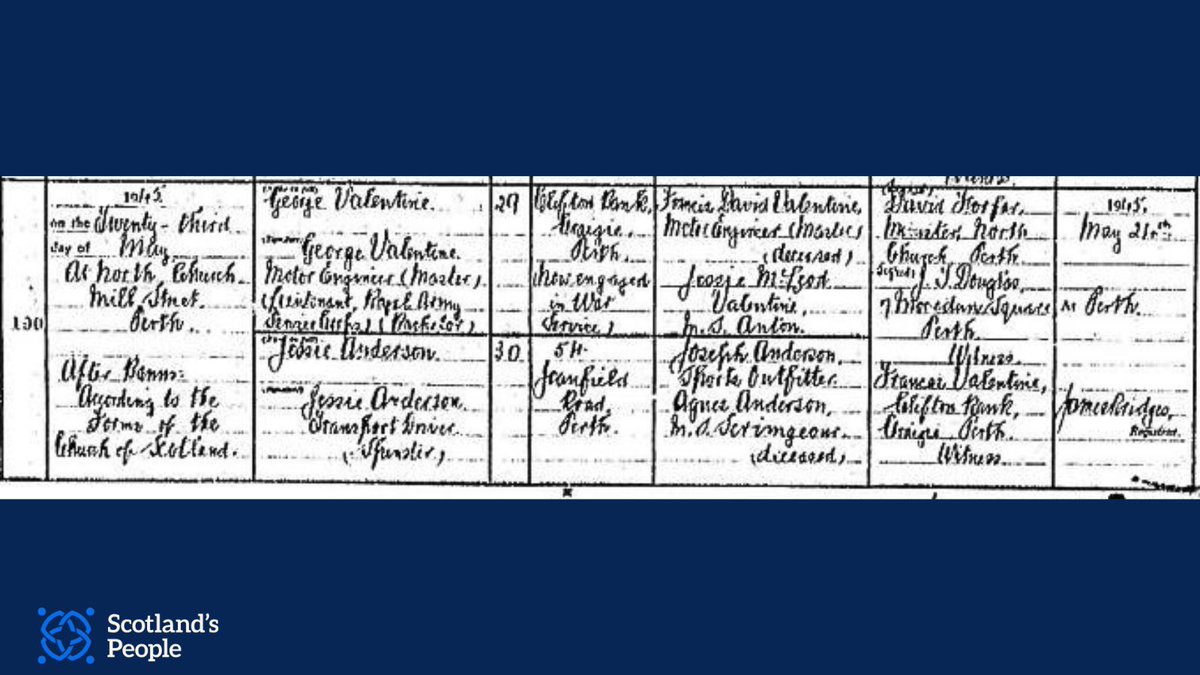 100
1945.
on the Twenty-third
day of May
At North Church
Mill Street
Perth.
After Banns
According to the
Forms of the
Church of Scotland.
(Signed)
George Valentine
(Signed)
George Valentine
Motor Engineer (Master)
(Lieutenant, Royal Army
Service Corps) (Bachelor)
Jessie Anderson
(Signed)
Jessie Anderson
Transport Driver
(Spinster)
29
30
Clifton Bank,
Craigie,
Perth.
(Now engaged
in War
Service)
54
Jeanfield
Road,
Perth.
Francis David Valentine,
Motor Engineer (Master)
(deceased)
Jessie McLeod
Valentine,
M.S. Anton.
Joseph Anderson,
Sports Outfitter
Agnes Anderson,
M.S. Scrimgeour
(deceased)
(Signed)
David Forfar,
Minister, North
Church Perth
(Signed) J. T. Douglas,
7 Muirdune Square
Perth.
Witness
Frances Valentine,
Clifton Bank,
Craigie Perth.
Witness
1945.
May 24th
At Perth.
James Bridges,
Registrar.
Scotland's
People